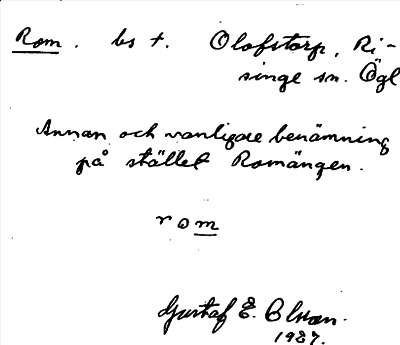 Rom. bs t. Olofstorp, Ri-
singe sn. Ögl
Annan och vanligare benämning
på stället Romängen.
rom
Gustaf E. Olsson.
1927.